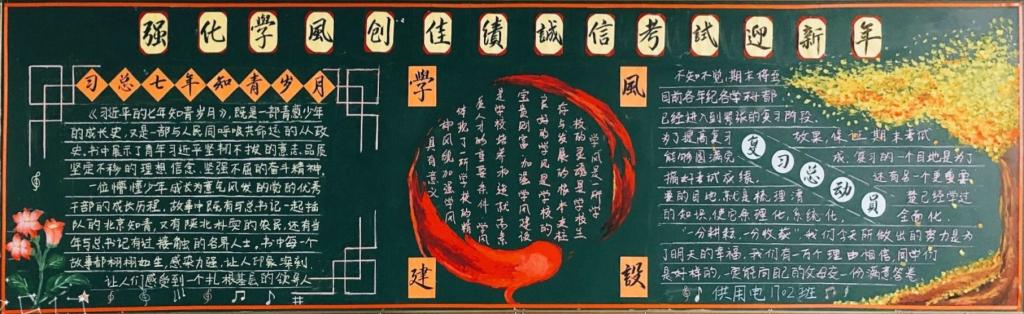 强化學風創佳績誠信考試迎新年
习总七年知青岁月
《习近平的七年知青岁月》,既是一部青葱少年
的成长史,又是一部与人民同呼吸共命运的从政
史。书中展示了青年习近平坚韧不拔的意志品质
坚定不移的理想信念、坚强不屈的奋斗精神,
一位懵懂少年成长为意气风发的党的优秀
干部的成长历程,故事中既有与总书记一起插
队的北京知青,又有陕北朴实的农民,还有当
年与总书记有过接触的各界人士,书中每一个
故事都栩栩如生,感染力强,让人印象深刻
让人们感受到一个扎根基层的领导人
學
風
建
設
学风是一所学
校的灵魂是学校生
存与发展的根本支柱
良好的学风是学校的
宝贵财富加强学风建设
是学校培养和造就高素
质人才的重要条件学风
体现了一所学校的精
神风貌加强学风
具有意义
不知不觉,期末将至
目前各年纪各学科都
已经进入到紧张的复习阶段。
为了提高复习 效果,保证期末考试
能够圆满完 成,复习的一个目地是为了
搞好考试应接 还有另一个更重要
要的目地就是梳理清 楚已经学过
的知识,使它条理化,系统化, 全面化。
复习总动员
“一分耕耘,一分收获”,我们今天所做出的努力是为
了明天的幸福,我们有一万个理由相信同学们
是好样的,一定能向自己的父母交一份满意答卷
供用电1702班